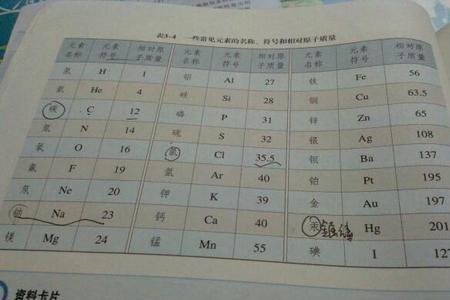 表3-4 一些常见元素的名称、符号和相对原子质量
元素名称 元素符号 相对原子质量 元素名称 元素符号 相对原子质量 元素名称 元素符号 相对原子质量
氢 H 1 铝 Al 27 铁 Fe 56
氦 He 4 硅 Si 28 铜 Cu 63.5
碳 C 12 磷 P 31 锌 Zn 65
氮 N 14 硫 S 32 银 Ag 108
氧 O 16 氯 Cl 35.5 钡 Ba 137
氟 F 19 氩 Ar 40 铂 Pt 195
氖 Ne 20 钾 K 39 金 Au 197
钠 Na 23 钙 Ca 40 汞 Hg 201
镁 Mg 24 锰 Mn 55 碘 I 127
资料卡片